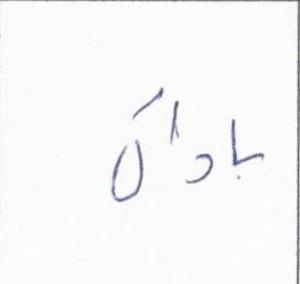 باداک